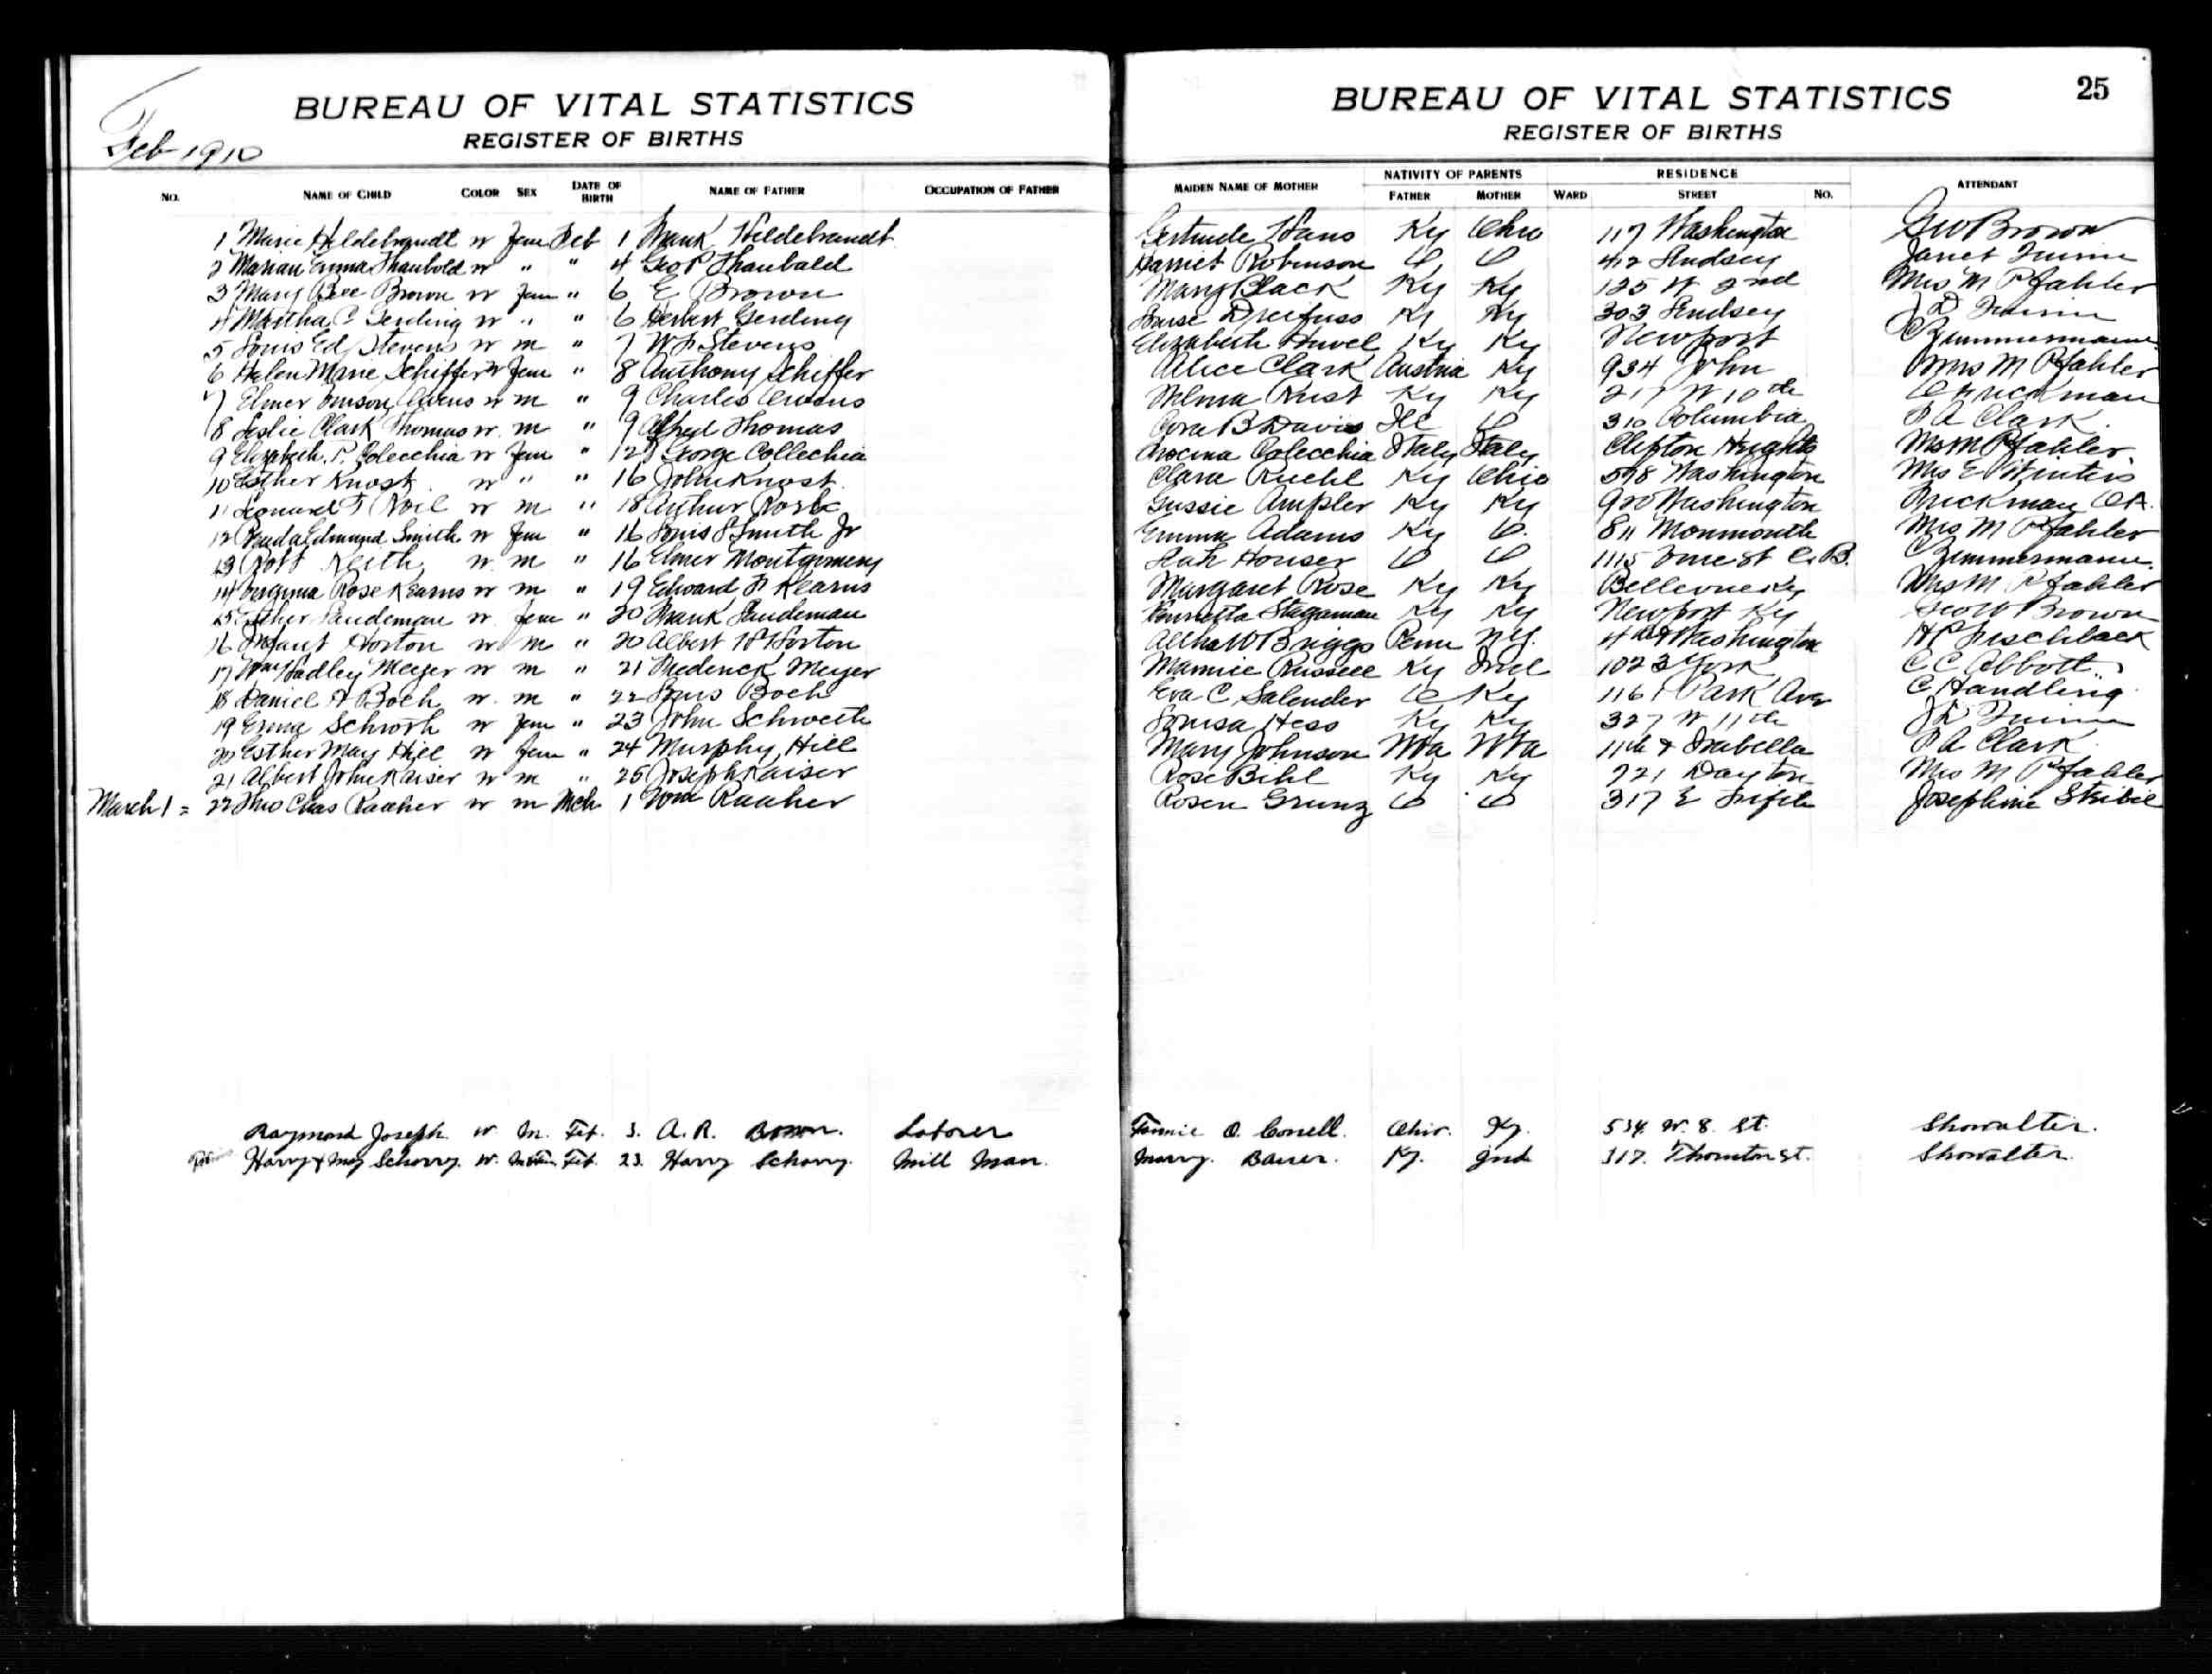 Feb 1910
BUREAU OF VITAL STATISTICS
REGISTER OF BIRTHS
BUREAU OF VITAL STATISTICS 25
REGISTER OF BIRTHS
NO. NAME OF CHILD COLOR SEX DATE OF BIRTH NAME OF FATHER OCCUPATION OF FATHER MAIDEN NAME OF MOTHER NATIVITY OF PARENTS FATHER MOTHER WARD RESIDENCE STREET NO. ATTENDANT
1 Marie Hildebrandt w Fem Feb 1 Frank Hildebrandt Gertrude Hans Ky Ohio 117 Washington Geo Brown
2 Marian Emma Thaubold w " " 4 Geo P Thaubald Harriet Robinson O O 412 Lindsey Janet
3 Mary Bell Brown w Fem " 6 E Brown Mary Black Ky Ky 125 W 2nd Mrs M Pfahler
4 Martha C Gerding w " " 6 Gerding Louise Dreifuss Ky Ky 303 Lindsey J D
5 Louis Ed Stevens w m " 7 W F Stevens Elizabeth Huvel Ky Ky Newport C Zimmermann
6 Helen Marie Schiffer w Fem " 8 Anthony Schiffer Alice Clark Austria Ky 934 John Mrs M Pfahler
7 Elmer Owens w m " 9 Charles Owens Wilma Rust Ky Ky 217 W 10th
8 Leslie Clark Thomas w. m " 9 Alfred Thomas Cora B Davis Ill O 310 Columbia P A Clark
9 Elizabeth P. Colecchia w Fem " 12 George Collechia Colecchia Italy Italy Clifton Hights Mrs M Pfahler
10 Esther Knost w " " 16 John Knost Clara Ruehl Ky Ohio 598 Washington Mrs E Winters
11 Leonard F w m " 18 Arthur Gussie Ampler Ky Ky 920 Washington
12 Edmund Smith w Fem " 16 Louis S Smith Jr Emma Adams Ky O. 811 Monmouth Mrs M Pfahler
13 Keith w. m " 16 Elmer Montgomery Houser O O 1115 C. B. C Zimmermann
14 Virginia Rose Kearns w m " 19 Edward F Kearns Margaret Rose Ky Ky Bellevue Ky Mrs M Pfahler
15 w. Fem " 20 Frank Stegaman Ky Ky Newport Ky Geo W Brown
16 Infant Horton w m " 20 Albert W Horton W Briggs Penn N.Y. 4th & Washington H C Fischback
17 Hadley Meyer w m " 21 Frederick Meyer Mamie Russell Ky Ind 1023 York C C Abbott
18 Daniel A Boch w. m " 22 Louis Boch Eva C. Salender O Ky 1161 Park Ave C Handling
19 Schroth w Fem " 23 John Schweth Louisa Hess Ky Ky 327 W 11th J D
20 Esther May Hill w Fem " 24 Murphy Hill Mary Johnson 11th & Isabella P A Clark
21 Albert John Kaiser w m " 25 Joseph Kaiser Rose Bihl Ky Ky 721 Dayton Mrs M Pfahler
March 1 = 22 Chas Raaker w m Mch 1 Raaker Rosen Grunz O O 317 E Josephine Stribel
Raymond Joseph w. M. Feb. 3. A. R. Brown. Laborer Fannie O. Conell. Ohio. Ky. 534. W. 8. St. Showalter.
Harry & May Schorry. w. Feb. 23. Harry Schorry. Mill Man. Marry. Bauer. Ky. Ind 317. Thornton St. Showalter.